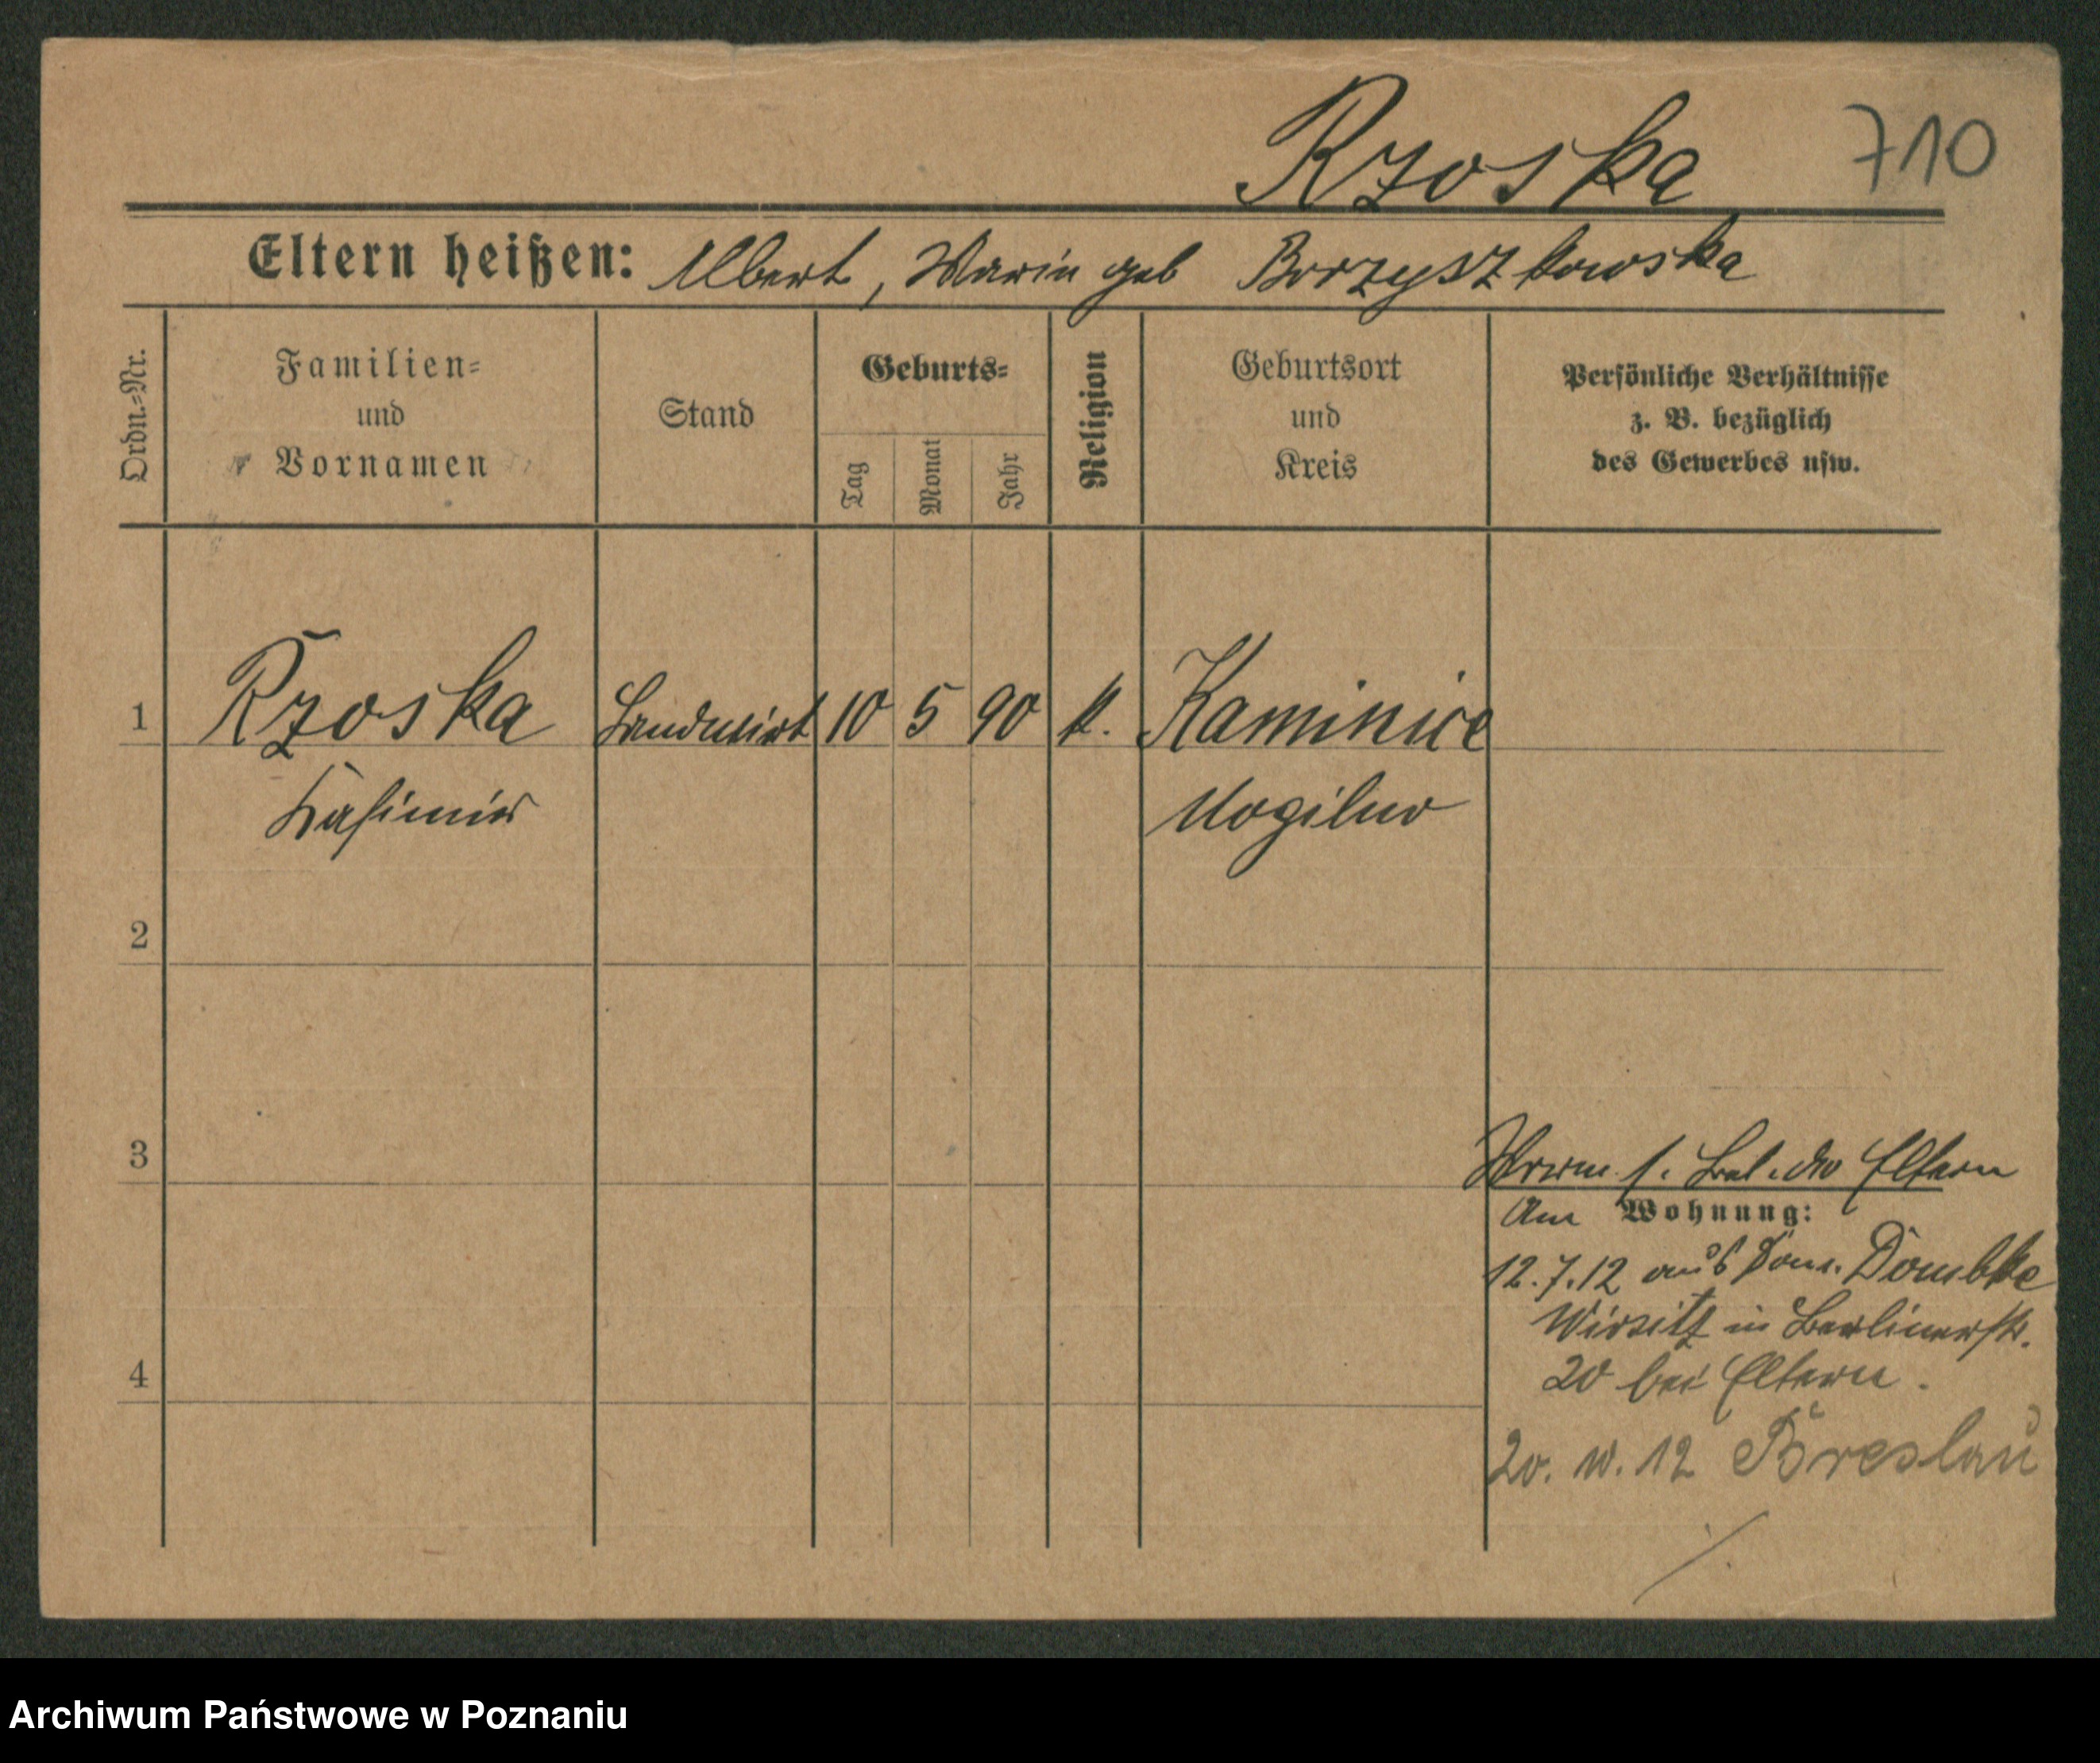 Rzoska 710
Eltern heißen: Albert, Maria geb Borzyszkowska
Ordn.-Nr.
Familien-
und
Vornamen
Stand
Geburts-
Tag
Monat
Jahr
Religion
Geburtsort
und
Kreis
Persönliche Verhältnisse
z. B. bezüglich
des Gewerbes usw.
1 Rzoska Landwirt 10 5 90 k. Kaminiec
Kasimir Mogilno
2
3
f. Eltern
Am Wohnung:
12.7.12 aus Dom. Dombke
Wirsitz in Berlinerstr.
4
20 bei Eltern.
12 Breslau
Archiwum Państwowe w Poznaniu